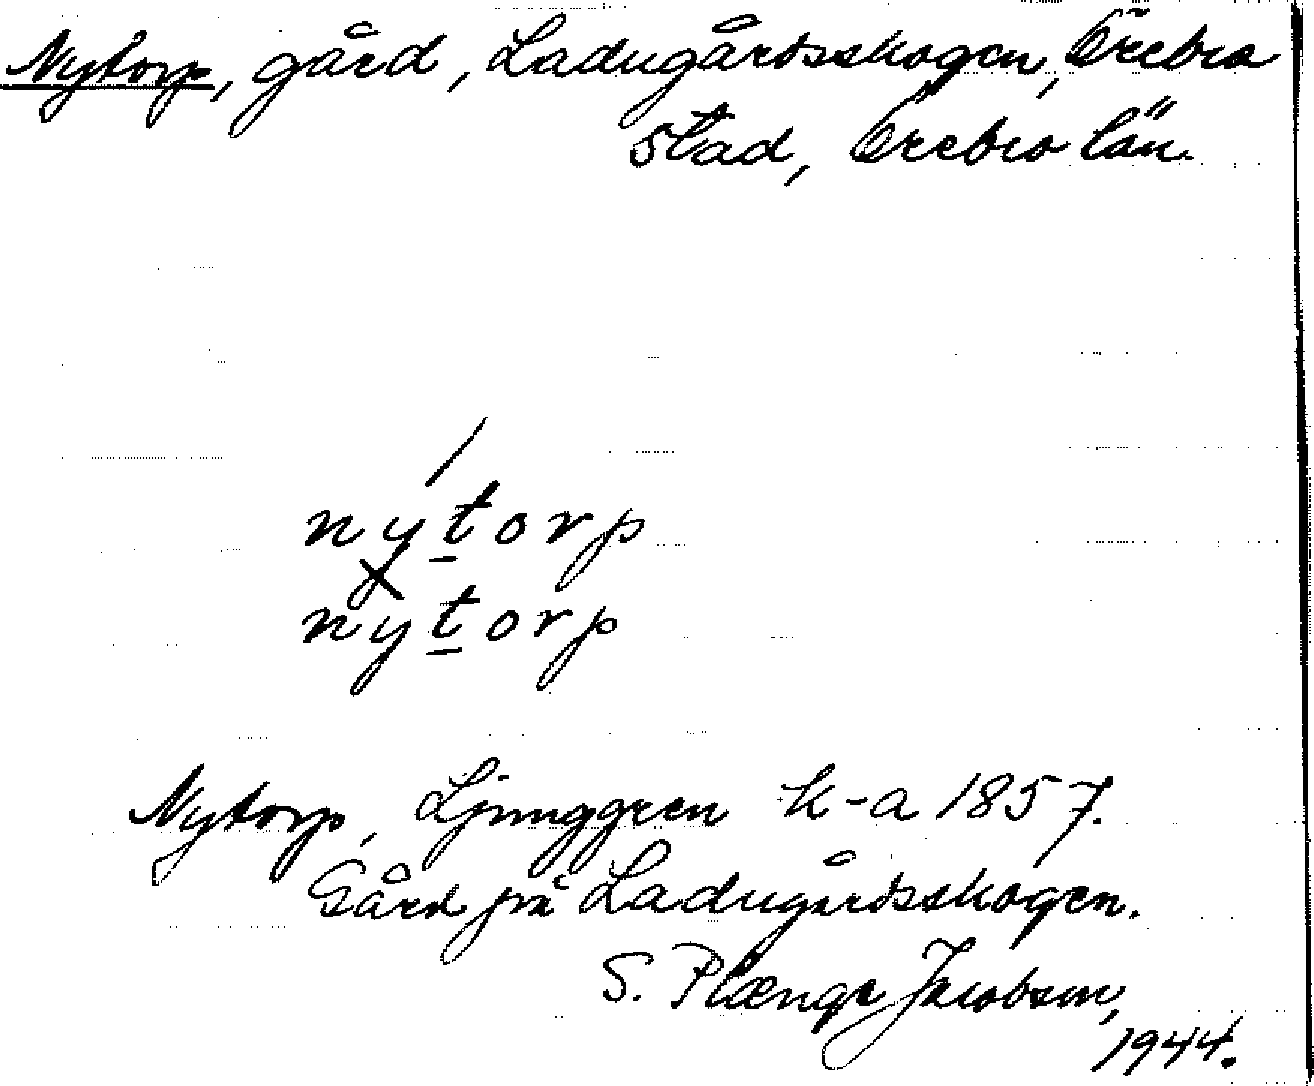 Nytorp, gård, Ladugårdsskogen, Örebro
stad, Örebro län.
/
nytorp
x
nytorp
Nytorp, Ljunggren k-a 1857.
Gård på Ladugårdsskogen.
S. Plænge Jacobson,
1944.